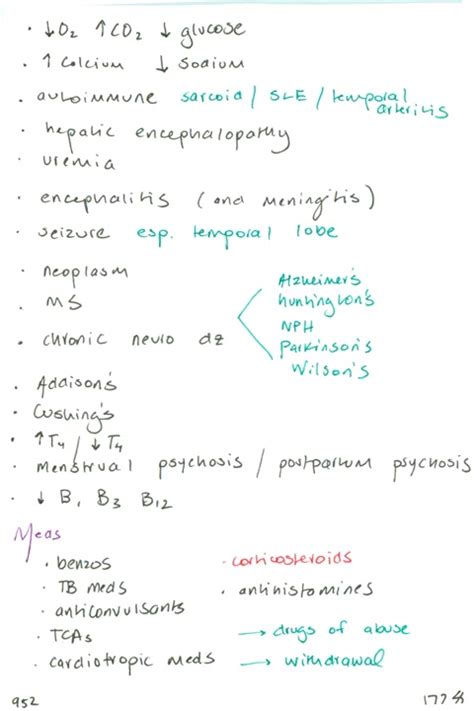 · ↓O₂ ↑CO₂ ↓ glucose
· ↑ Calcium ↓ Sodium
· autoimmune sarcoid / SLE / temporal arteritis
· hepatic encephalopathy
· uremia
· encephalitis (and meningitis)
· seizure esp. temporal lobe
· neoplasm
· MS
· chronic neuro dz
Alzheimer's
Huntington's
NPH
Parkinson's
Wilson's
· Addison's
· Cushing's
· ↑T₄ / ↓T₄
· menstrual psychosis / postpartum psychosis
· ↓ B₁ B₃ B₁₂
Meds
· benzos
· TB meds
· anticonvulsants
· TCAs
· cardiotropic meds
· corticosteroids
· antihistamines
→ drugs of abuse
→ withdrawal
952